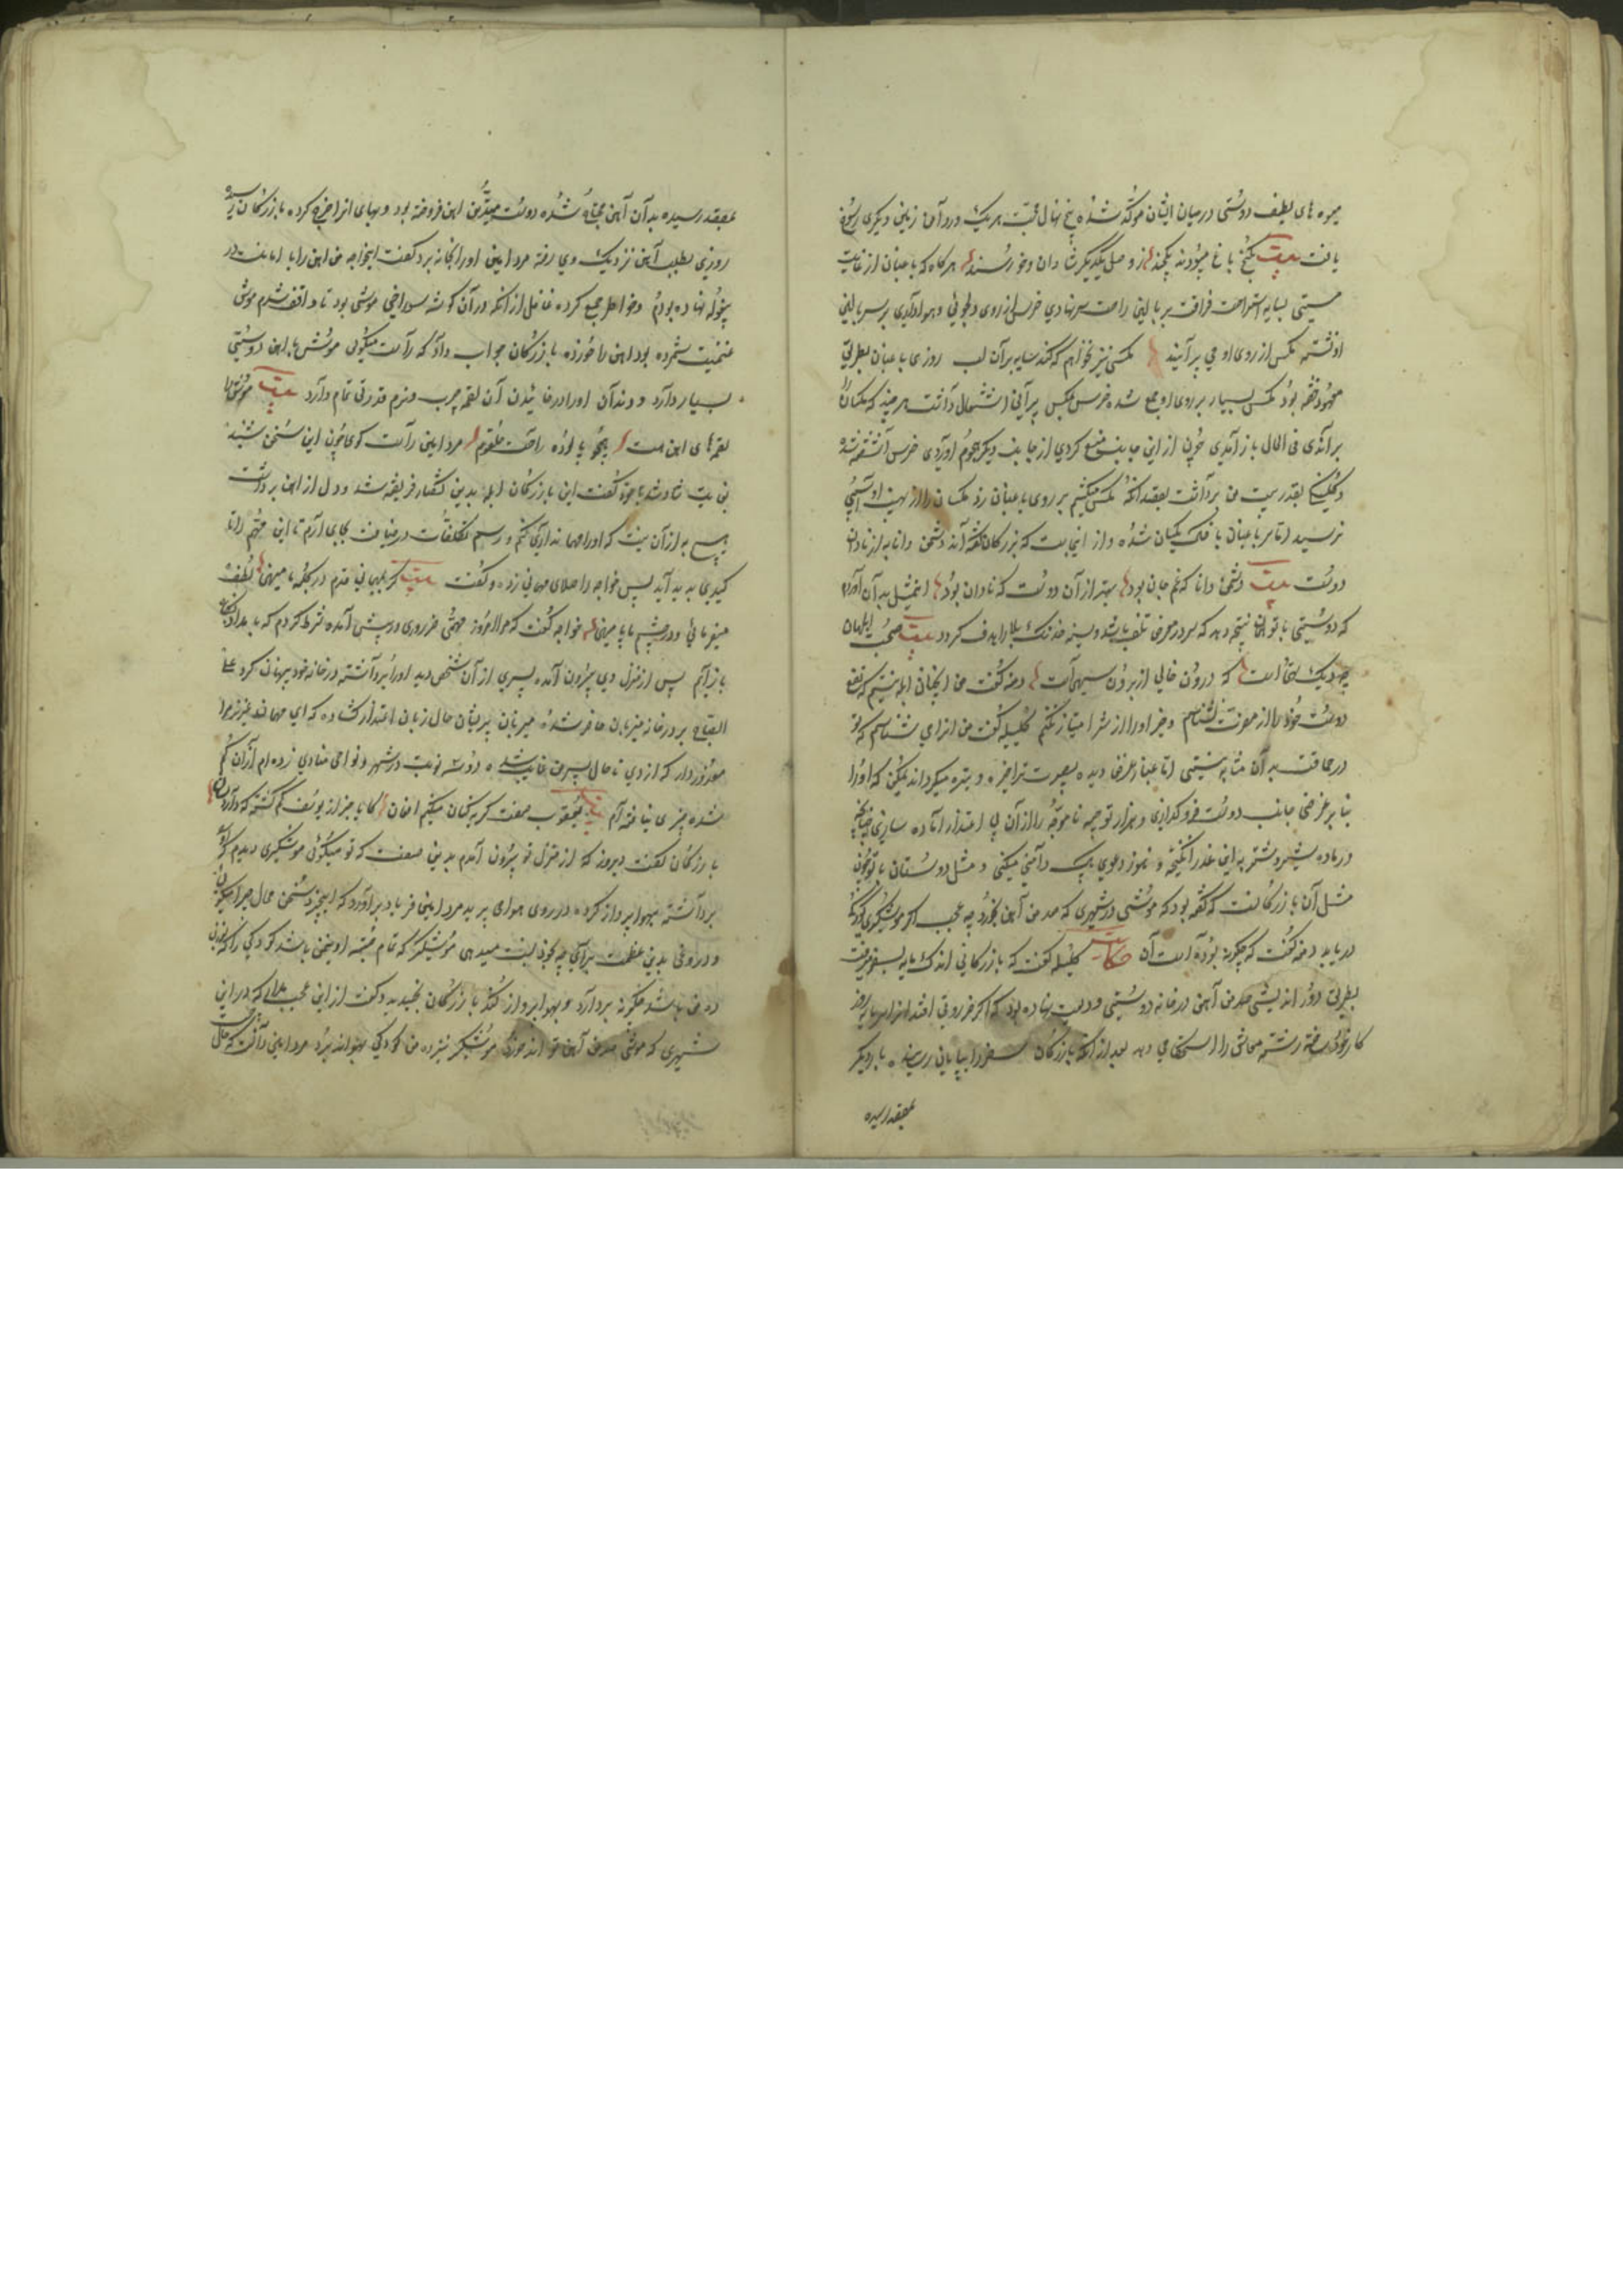 میوه های لطیف دوستی درمیان ایشان موکد شده بیخ نهال محبت هریک در آن زمین دیگری رسوخ
یافت بیت بکنج باغ میبودند یکچند ز وصل یکدیگر شادان و خورسند هرگاه که باغبان از غایت
سستی بسایه استراحت فراغت بر بالین راحت سر نهادی خرس از روی دلجوئی و هواداری بر سر بالین
او نشسته مکس از روی او می پرانید مکسی نیز نخواهم که کند سایه بر آن لب روزی باغبان بطریق
معهود خفته بود مکس بسیار بر روی او جمع شده خرس مکس پرانی اشتغال داشت هر چند که مکسان را
براندی فی الحال باز آمدی چون از این جانب منع کردی از جانب دیگر هجوم آوردی خرس آشفته شده
و سنگی بقدر بیست من برداشت بقصد آنکه مکس میکشم بر روی باغبان زد مکسان را از نهیب او آسیبی
نرسید اما سر باغبان با خاک یکسان شده و از اینجاست که بزرگان گفته اند دشمن دانا به از نادان
دوست بیت دشمن دانا که غم جان بود بهتر از آن دوست که نادان بود این مثل بدان آوردم
که دوستی با تو همان نتیجه دهد که سر در معرض تلف باشد و سینه خدنک بلا را هدف گردد بیت صحبت ابلهان
چو دیک تهی است که درون خالی از برون سیهی است دمنه گفت من آنچنان ابله نیستم که نفع
دوست خود را از مضرت نشناسم و خیر او را از شر امتیاز نکنم کلیله گفت من این را می شناسم که تو
در حماقت بدان مثابه نیستی اما غبار غرض دیده بصیرت ترا خیره و تیره میکرداند ممکن که او را
بنابر غرضی جانب دوست فرو گذاری و هزار توجیه ناموجه را از آن اعتذار آماده سازی چنانچه
در ماده شیر و شتربه این غدر انگیخته و هنوز دعوی پاک دامنی میکنی و مثل دوستان با تو چون
مثل آن بازرگانست که گفته بود که موشی در شهری که صد من آهن بخورد چه عجب اگر موشگیری کودکی
درباید دمنه گفت که چگونه بوده است آن حکایت کلیله گفت که بازرگانی اندک مایه بسفر میرفت
بطریق دور اندیشی صد من آهن در خانه دوستی ودیعت نهاده بود که اگر ضرورتی افتد آنرا سرمایه روز
کار خود ساخته رشته معاش را استحکامی دهد بعد از آنکه بازرگان سفر را بپایانی رسانیده بار دیگر
بمقصد رسیده
بمقصد رسیده بدان آهن محتاج شده دوست متدین آهن فروخته بود و بهای آنرا خرج کرده بازرگان
روزی بطلب آهن نزدیک وی رفته مرد امین او را بخانه برد گفت ایخواجه من آهن را بامانت در
بیغوله نهاده بودم و خواطر جمع کرده غافل از آنکه در آن گوشه سوراخی موشی بود تا واقف شدم موش
غنیمت شمرده بود آهن را خورده بازرگان جواب داد که راست میگوئی موش با آهن دوستی
بسیار دارد و دندان او را در خائیدن آن لقمه چرب و نرم قدرتی تمام دارد بیت موش را
لقمهای آهن هست همچو پالوده راحت حلقوم مرد امین راست گوی چون این سخن شنید
بغایت شاد شد با خود گفت این بازرگان ابله بدین گفتار فریفته شد و دل از آهن برداشت
هیچ به از آن نیست که او را مهمانداری کنم و رسم تکلفات در ضیافت بجای آرم تا این مهم را تا
کیدی پدید آید پس خواجه را صلای مهمانی زده و گفت بیت گر بمهمانی قدم در کلبه ما مینهی لطف
مینمائی و در چشم ما پا مینهی خواجه گفت که مرا امروز مهمی ضروری در پیش آمده شرط کردم که بامداد بگاه
باز آیم پس از منزل وی بیرون آمده پسری از آن شخص دید او را برداشته در خانه خود پنهان کرد علی
الصباح بر در خانه میزبان حاضر شده میزبان پریشان حال زبان اعتذار گشاده که ای مهمان عزیز مرا
معذور دار که از دی تا حال پسر من غایب شده دو سه نوبت در شهر و نواحی منادی زده ام از آن گم
شده خبری نیافته ام بیت یعقوب صفت گریه کنان میکنم افغان کایا خبر از یوسف گم گشته که دارد
بازرگان گفت دیروز که از منزل تو بیرون آمدم بدین صفت که تو میگوئی موشگیری دیدم که
برداشته بهوا پرواز کرده در روی هوا می پرید مرد امین فریاد برآورد که ای بیخرد سخن محال چرا میگوئی
و دروغی بدین عظمت بر آن چه نسبت میدهی موشگیر که تمام جثه او نیم من باشد کودکی را که بوزن
ده من باشد چگونه بردارد و بهوا پرواز کند بازرگان بخندید و گفت از این عجب مدار که در این
شهری که موش صد من آهن تواند خورد موشگیر نیز ده من کودکی بهوا تواند برد مرد امین دانست که حال